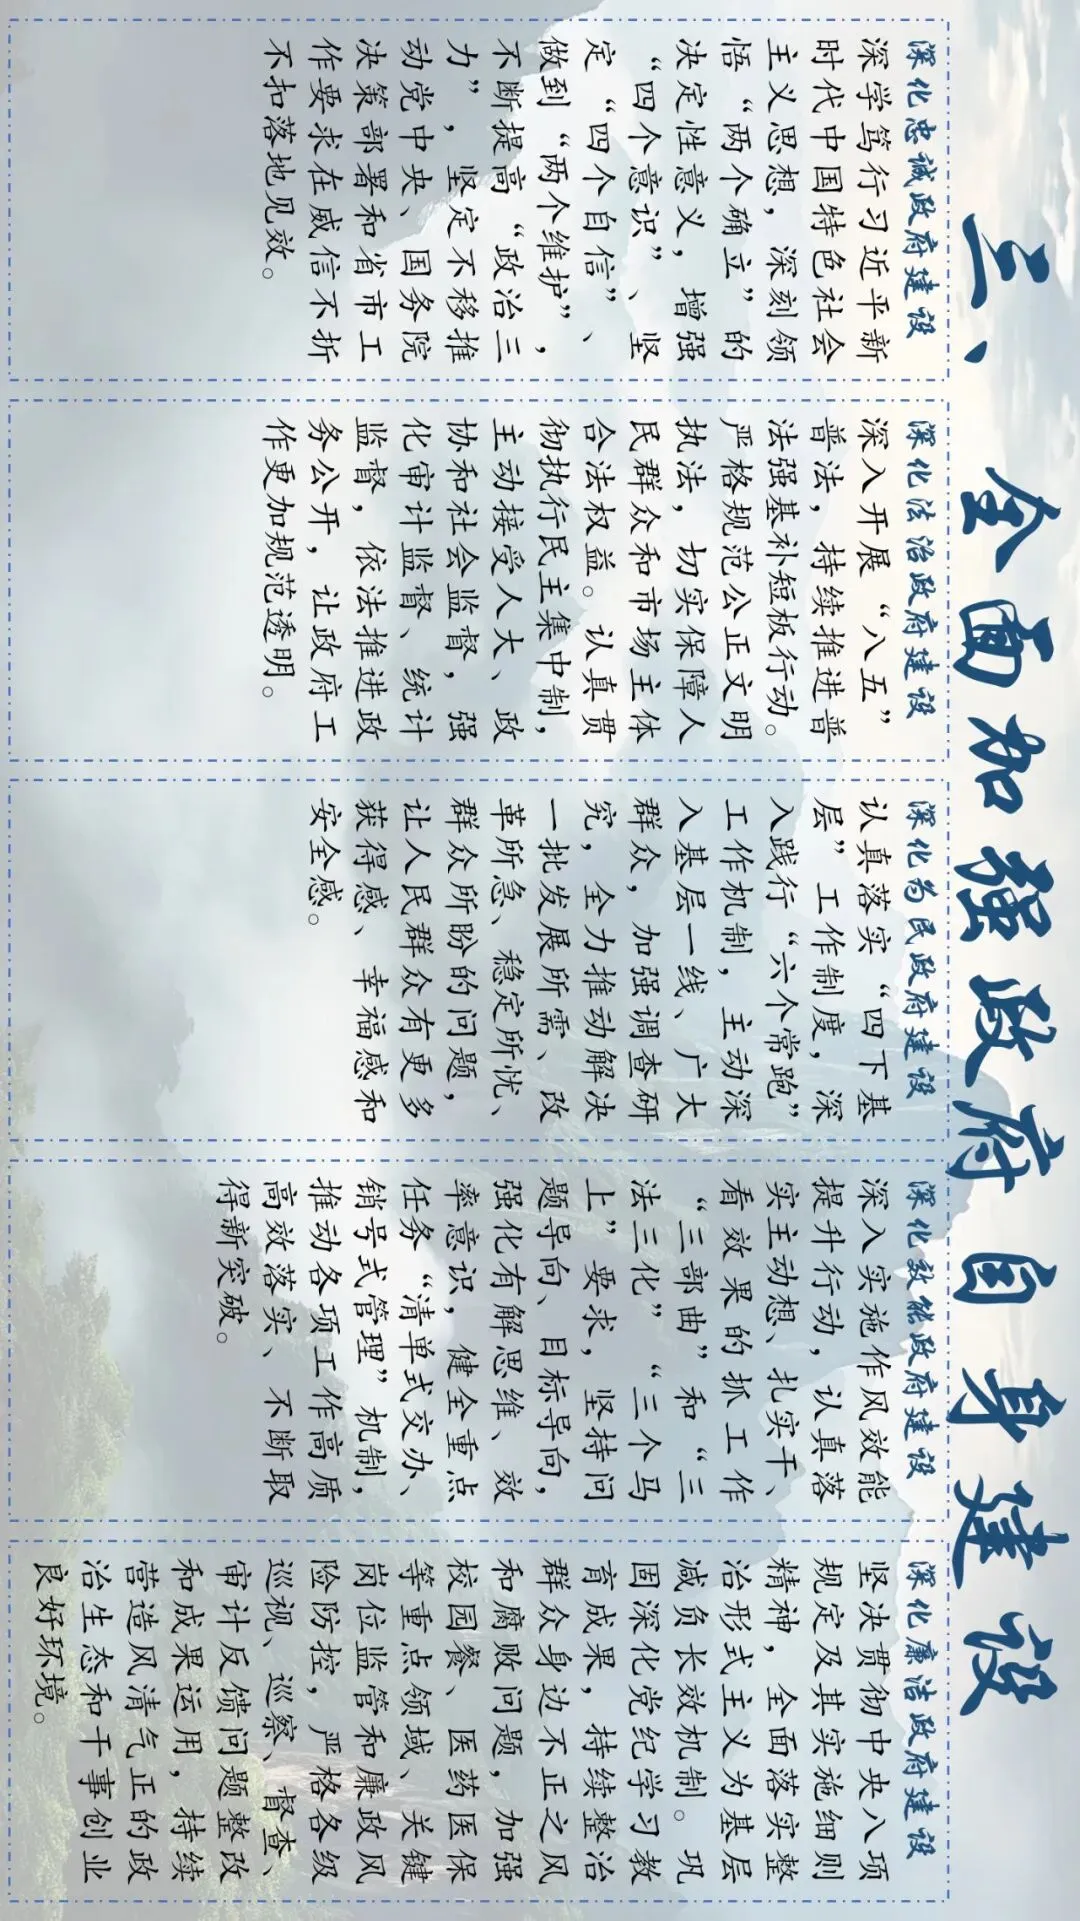 三、全面加强政府自身建设
深化忠诚政府建设
深学笃行习近平新
时代中国特色社会
主义思想，深刻领
悟“两个确立”的
决定性意义，增强
“四个意识”、坚
定“四个自信”、
做到“两个维护”，
不断提高“政治三
力”，坚定不移推
动党中央、国务院
决策部署和省市工
作要求在威信不折
不扣落地见效。
深化法治政府建设
深入开展“八五”
普法，持续推进普
法强基补短板行动。
严格规范公正文明
执法，切实保障人
民群众和市场主体
合法权益。认真贯
彻执行民主集中制，
主动接受人大、政
协和社会监督，强
化审计监督、统计
监督，依法推进政
务公开，让政府工
作更加规范透明。
深化为民政府建设
认真落实“四下基
层”工作制度，深
入践行“六个常跑”
工作机制，主动深
入基层一线、广大
群众，加强调查研
究，全力推动解决
一批发展所需、改
革所急、稳定所忧、
群众所盼的问题，
让人民群众有更多
获得感、幸福感和
安全感。
深化效能政府建设
深入实施作风效能
提升行动，认真落
实主动想、扎实干、
看效果的抓工作
“三部曲”和“三
法三化”“三个马
上”要求，坚持问
题导向、目标导向，
强化有解思维、效
率意识，健全重点
任务“清单式交办、
销号式管理”机制，
推动各项工作高质
高效落实、不断取
得新突破。
深化廉洁政府建设
坚决贯彻中央八项
规定及其实施细则
精神，全面落实整
治形式主义为基层
减负长效机制。巩
固深化党纪学习教
育成果，持续整治
群众身边不正之风
和腐败问题，加强
校园餐、医药医保
等重点领域、关键
岗位监管和廉政风
险防控，严格各级
巡视、巡察、督查、
审计反馈问题整改
和成果运用，持续
营造风清气正的政
治生态和干事创业
良好环境。